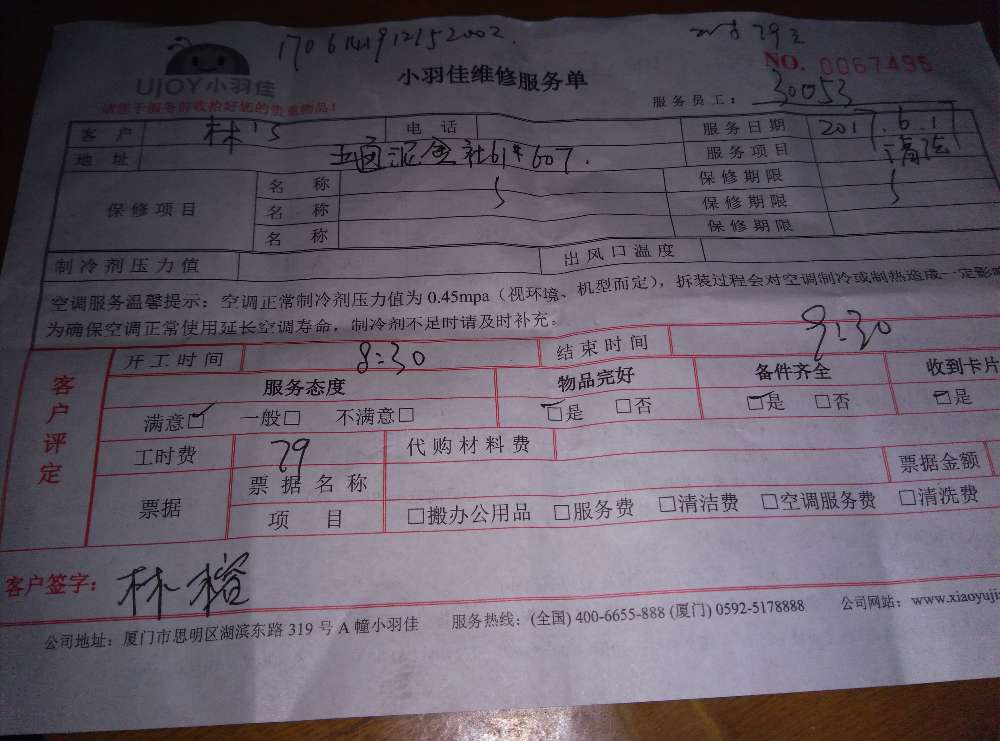 NO. 0067495
UJOY小羽佳
小羽佳维修服务单
请您于服务前收拾好您的贵重物品！
服务员工： 30053
客户 林's 电话 服务日期 2017.6.17
地址 61# 607. 服务项目 清洗
保修项目 名称 保修期限
名称 保修期限
名称 保修期限
制冷剂压力值 出风口温度
空调服务温馨提示：空调正常制冷剂压力值为 0.45mpa（视环境、机型而定），拆装过程会对空调制冷或制热造成一定影
为确保空调正常使用延长空调寿命，制冷剂不足时请及时补充。
客户评定
开工时间 8:30 结束时间 9:30
服务态度 物品完好 备件齐全 收到卡片
满意☑ 一般□ 不满意□ ☑是 □否 ☑是 □否 ☑是
工时费 79 代购材料费
票据 票据名称 票据金额
项目 □搬办公用品 □服务费 □清洁费 □空调服务费 □清洗费
客户签字： 林榕
公司地址：厦门市思明区湖滨东路 319 号 A 幢小羽佳 服务热线：(全国) 400-6655-888 (厦门) 0592-5178888 公司网站：www.xiaoyuji